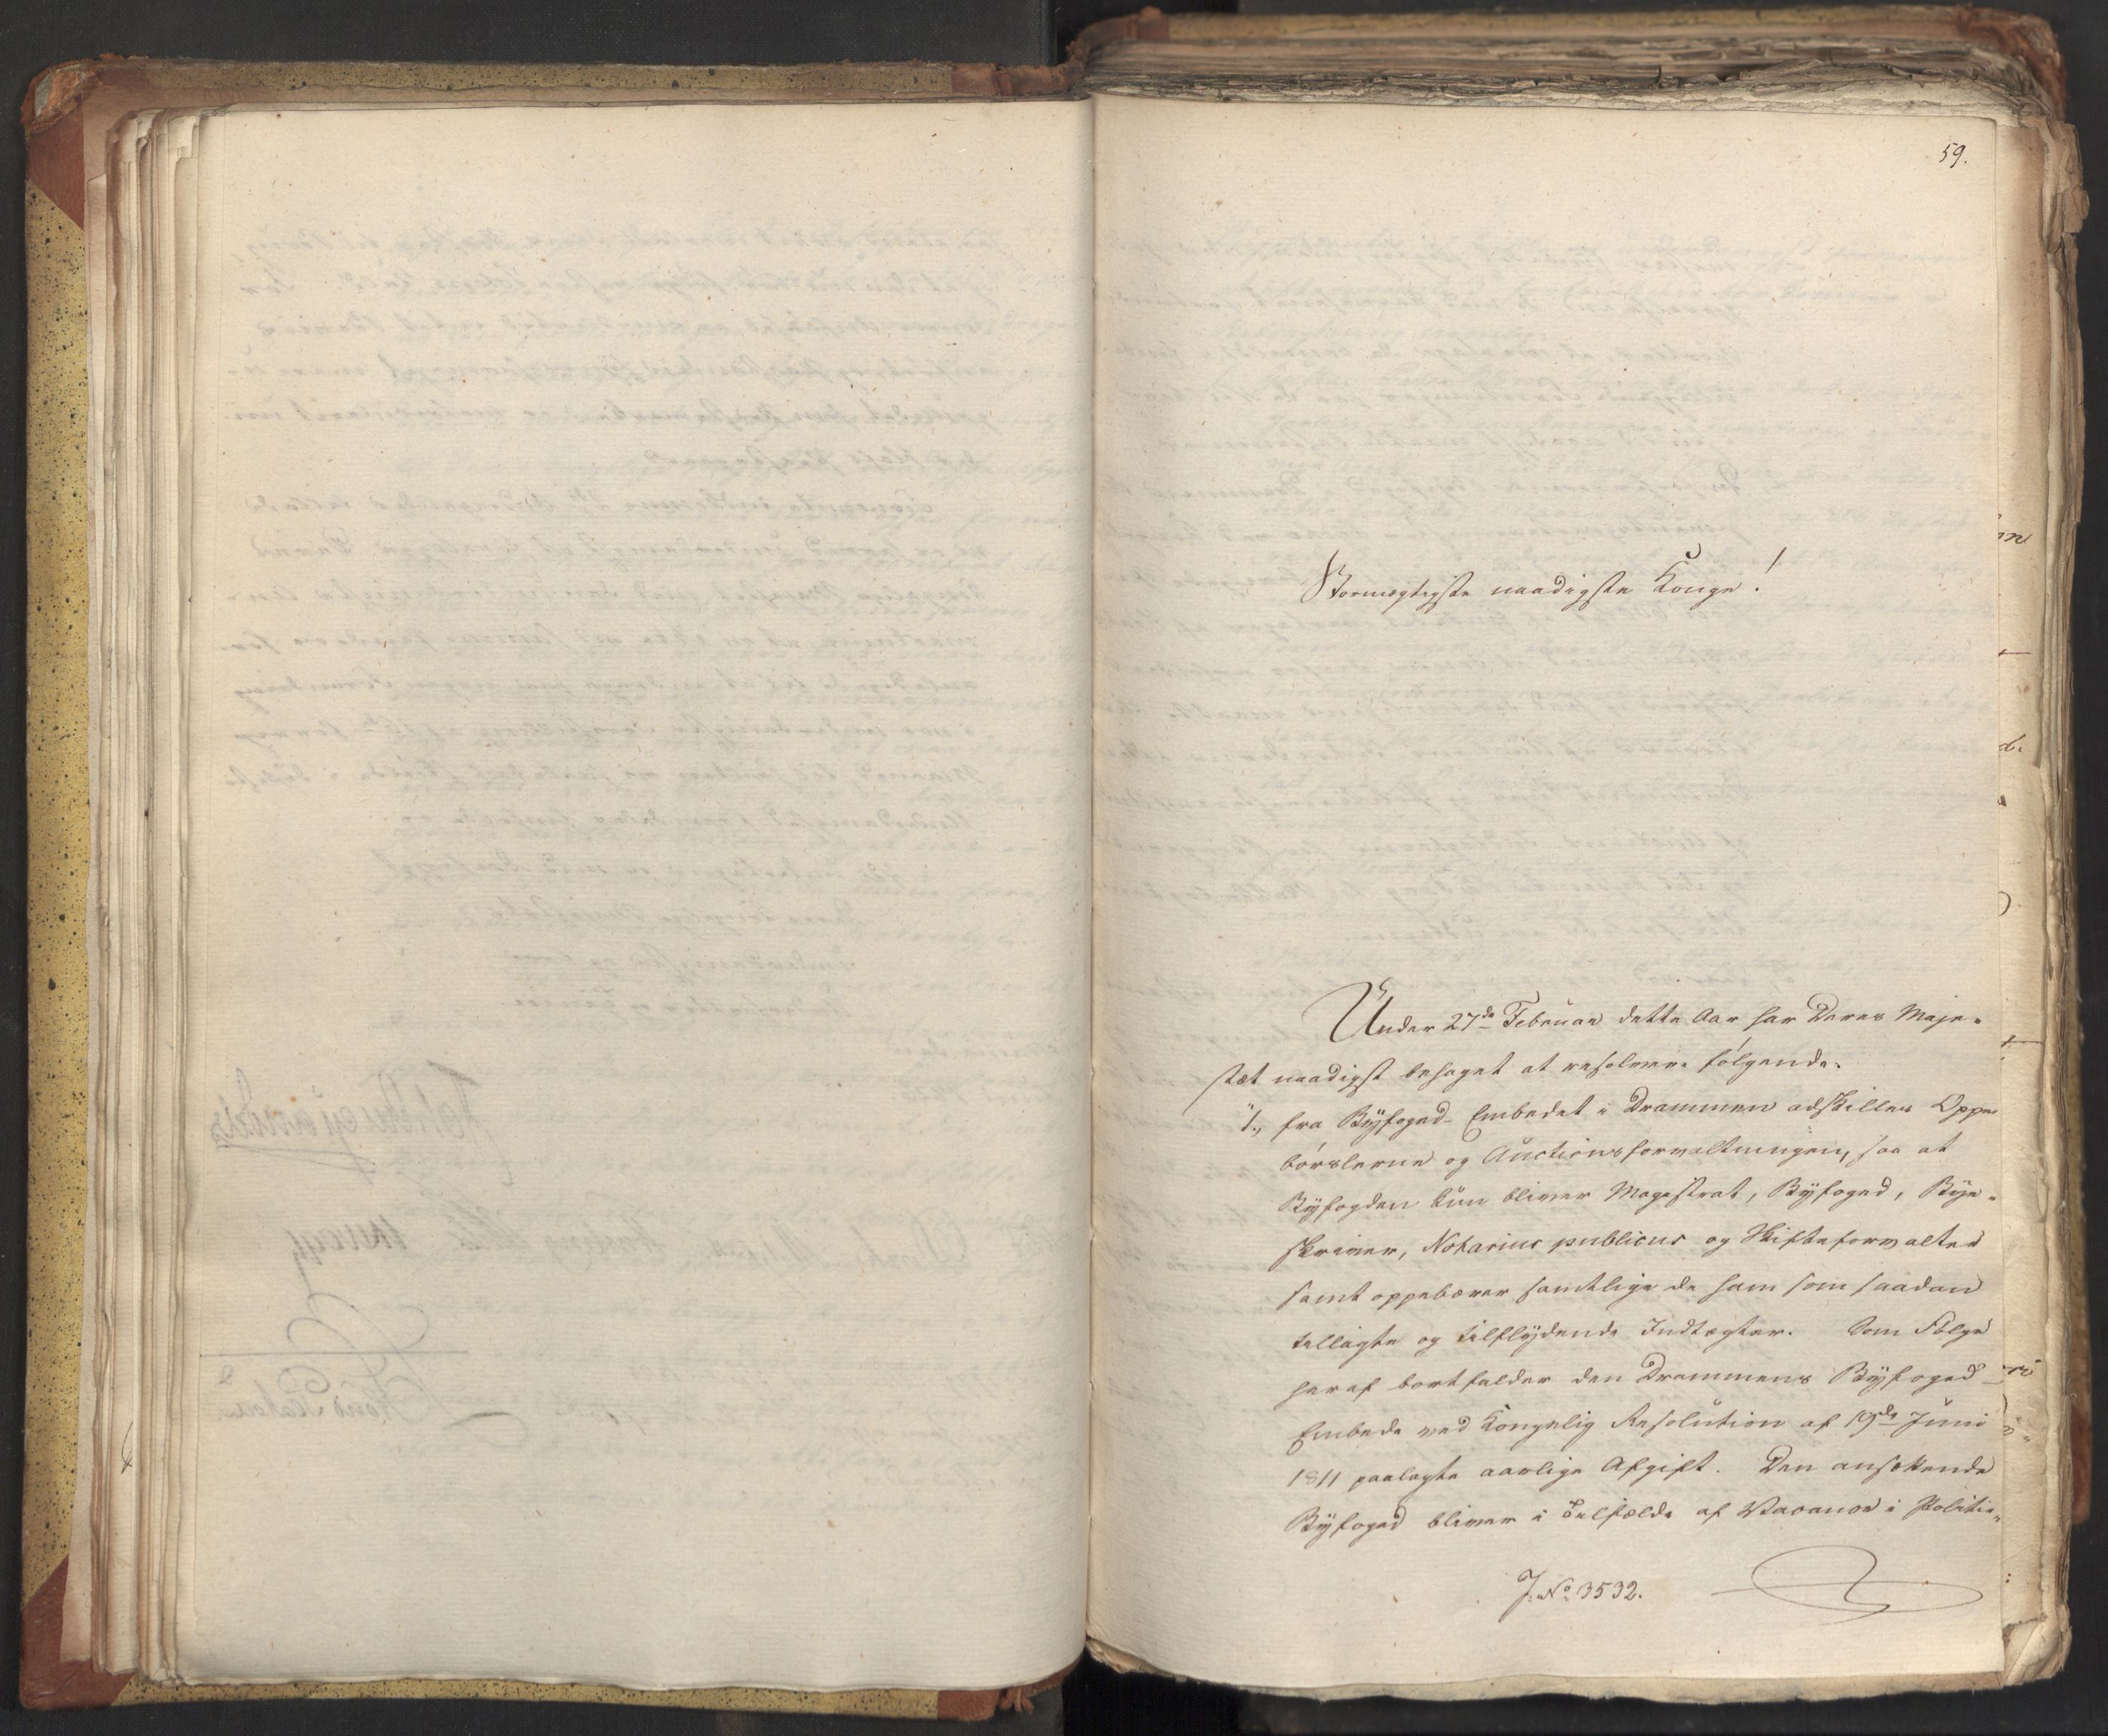 59.
Stormægtigste naadigste Konge!
Under 27de Februar dette Aar har Deres Maje-
stæt naadigst behaget at resolvere følgende:
"1., fra Byfoged-Embedet i Drammen adskilles Oppe-
børslerne og Auctionsforvaltningen, saa at
Byfogden kun bliver Magistrat, Byfoged, Bye-
skriver, Notarius publicus og Skifteforvalter
samt oppebærer samtlige de ham som saadan
tillagte og tilflydende Indtægter. Som Følge
heraf bortfalder den Drammens Byfoged-
Embede ved Kongelig Resolution af 19de Juni
1811 paalagte aarlige Afgift. Den ansættende
Byfoged bliver i Tilfælde af Vacance i Politie-
J. No 3532.